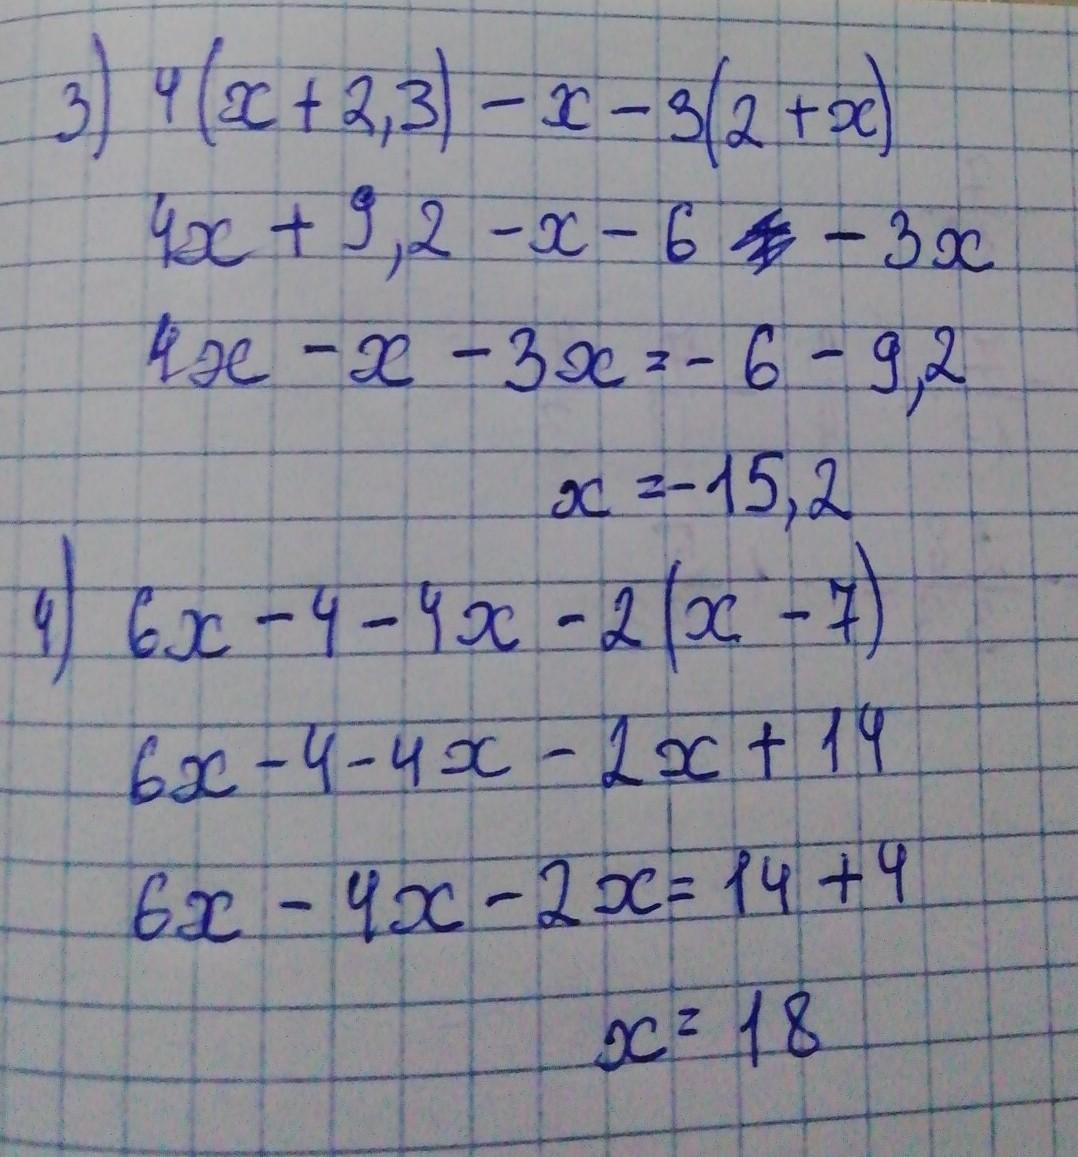 3) 4(x+2,3)-x-3(2+x)
4x+9,2-x-6-3x
4x-x-3x=-6-9,2
x=-15,2
4) 6x-4-4x-2(x-7)
6x-4-4x-2x+14
6x-4x-2x=14+4
x=18